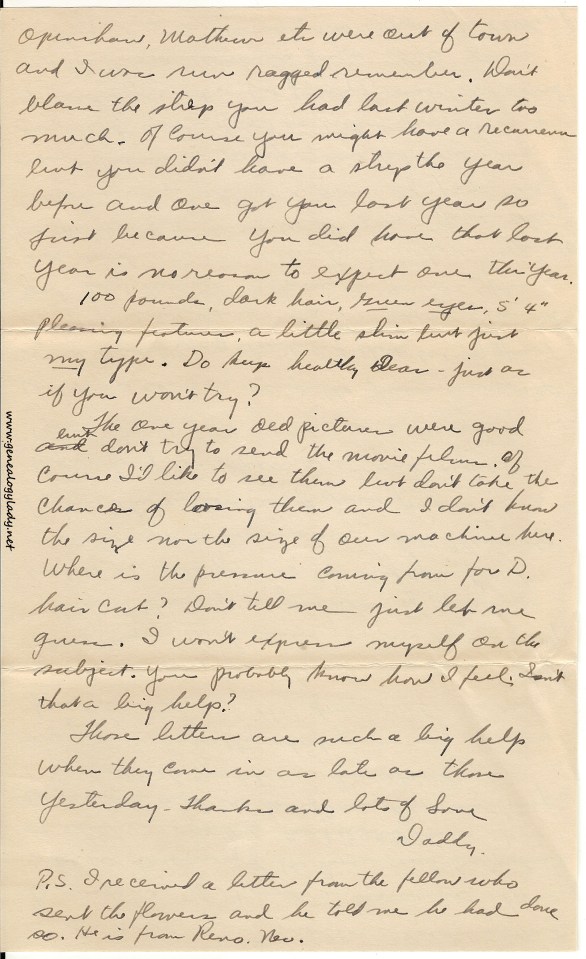 Openshaw, Mathew etc were out of town
and I was run ragged remember. Don't
blame the strep you had last winter too
much. Of Course you might have a recurrence
but you didn't have a strep the year
before and one got you last year so
just because you did have that last
year is no reason to expect one this year.
100 pounds, dark hair, green eyes, 5' 4"
pleasing features, a little slim but just
my type. Do keep healthy dear - just as
if you won't try?
The one year old pictures were good
but don't try to send the movie films. Of
Course I'd like to see them but don't take the
chance of loosing them and I don't know
the size nor the size of our machine here.
Where is the pressure coming from for D.
hair cut? Don't tell me just let me
guess. I won't express myself on the
subject. You probably know how I feel. Isn't
that a big help?
Those letters are such a big help
when they come in as late as those
yesterday - Thanks and lots of Love
Daddy.
P.S. I received a letter from the fellow who
sent the flowers and he told me he had done
so. He is from Reno. Nev.
www.genealogylady.net